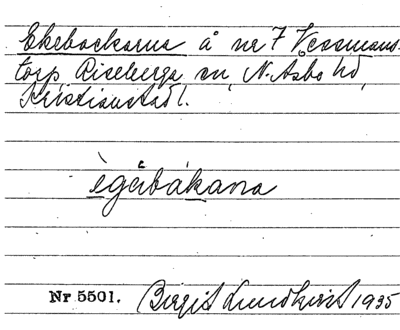 Ekebackarna å nr 7 Väsmans-
torp Riseberga sn, N. Åsbo hd,
Kristianstad l.
ègâbákana
Nr 5501. Birgit Lundkvist 1935